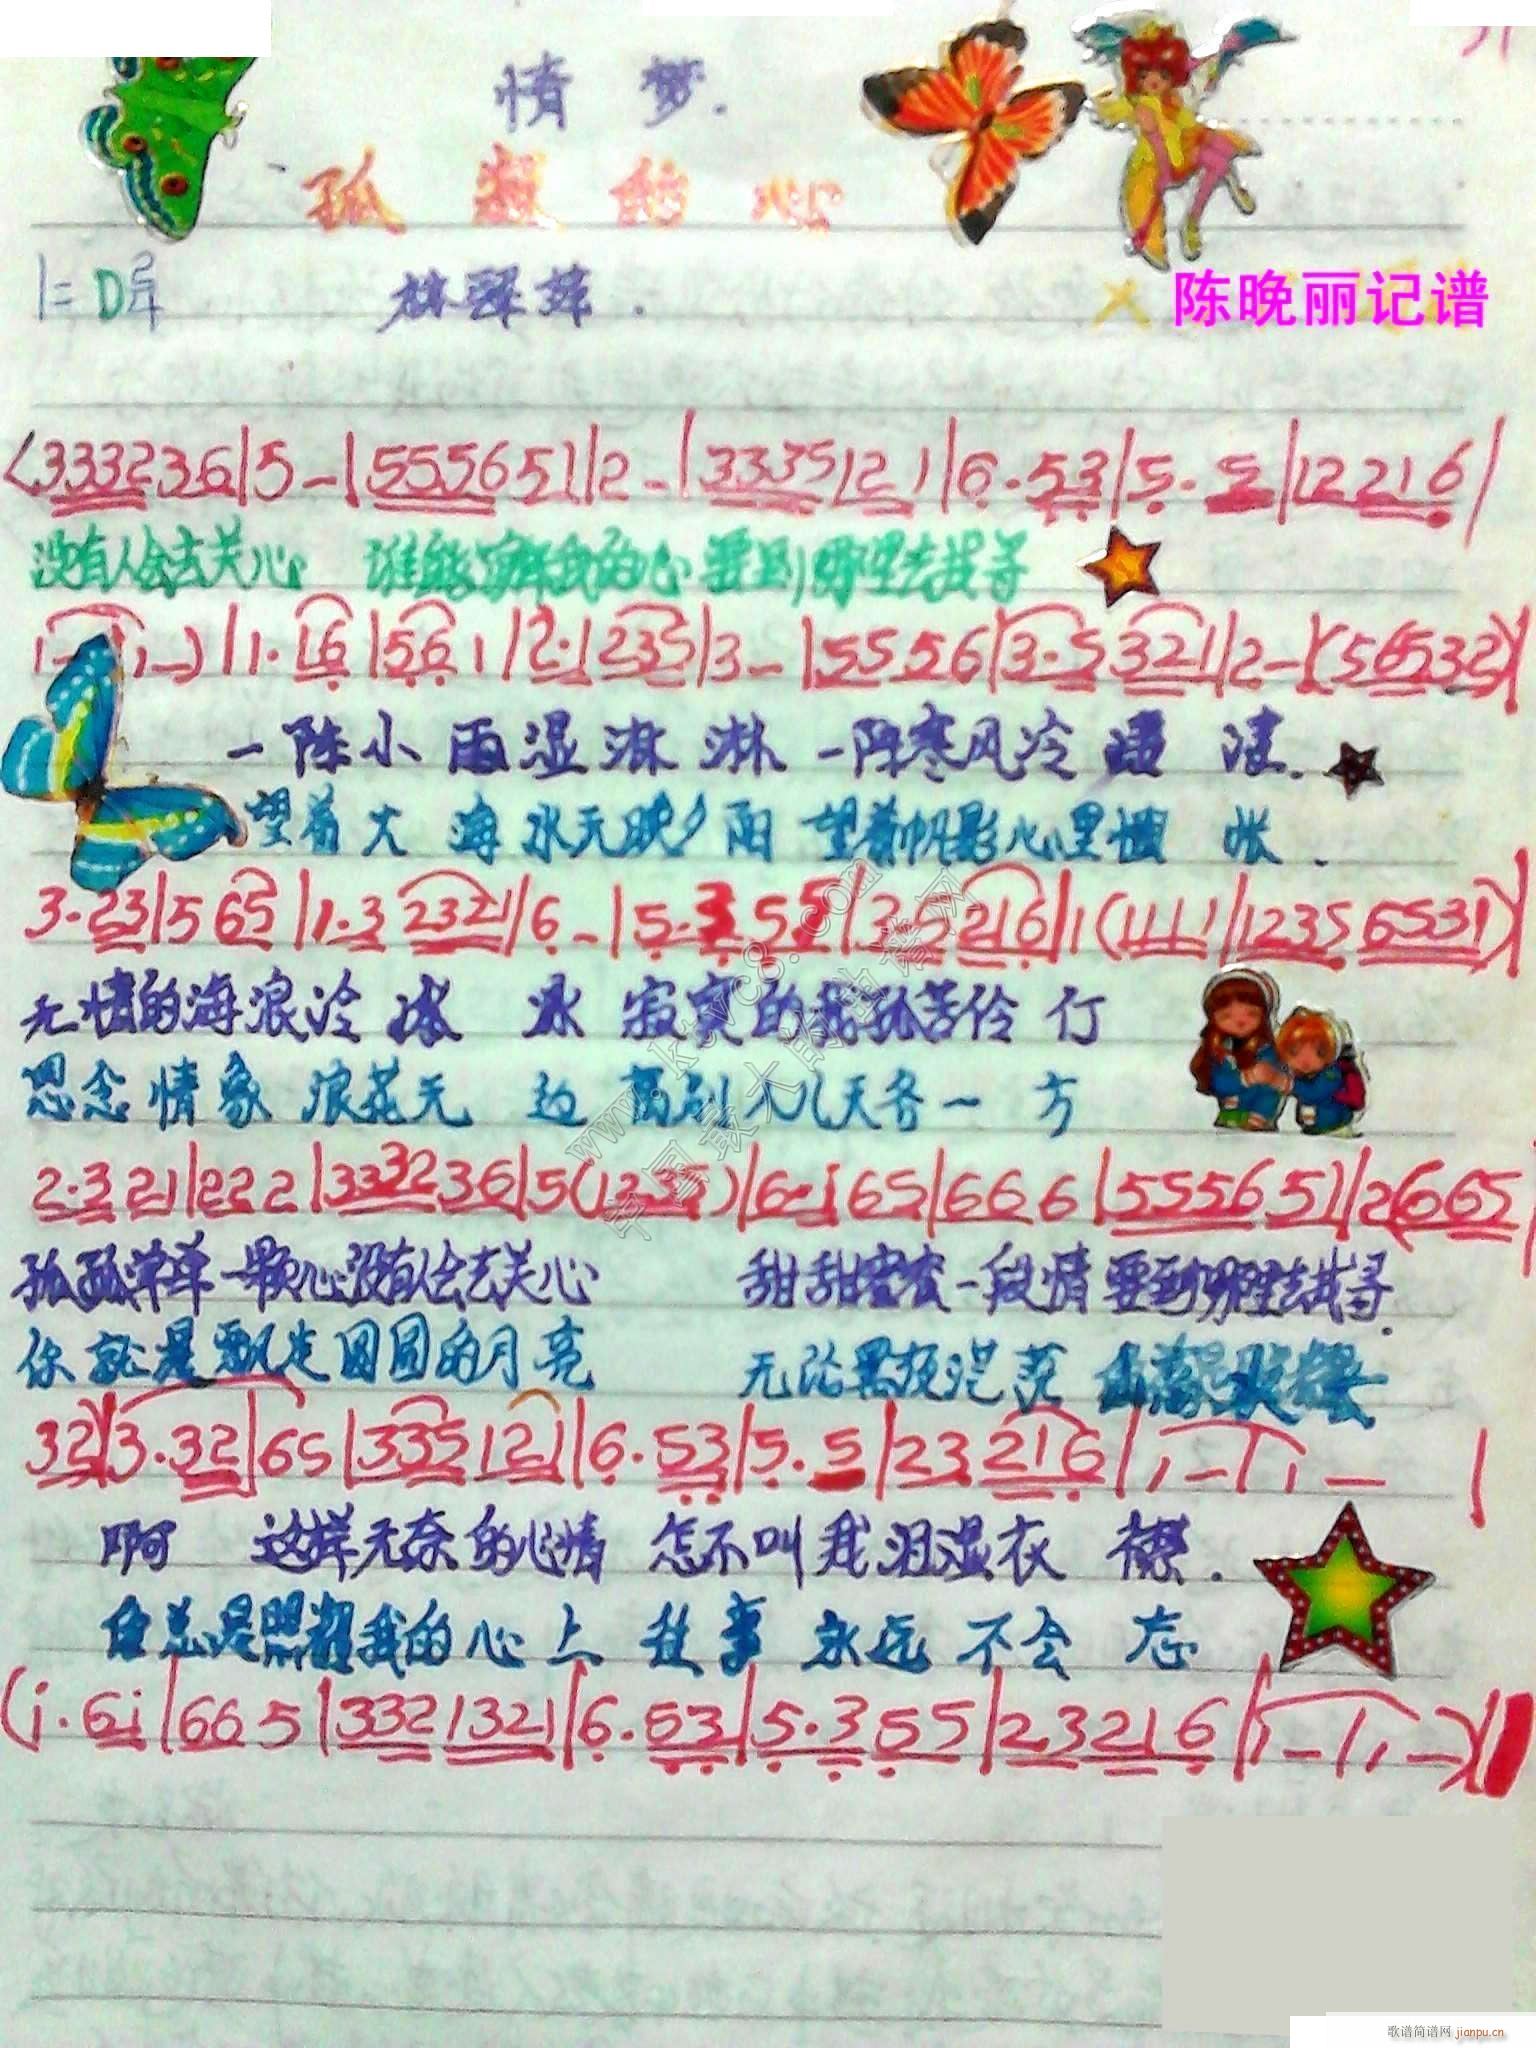 情 梦.
孤 寂 的 心
1=D
陈晚丽记谱
(333236|5-|555651|2-|3335121|6.53|5.5|12216|
没有人会去关心 谁能了解我的心 要到哪里去找寻
1-|1-)|1.16|561|2.1235|3-|5556|3.5321|2-|(56532)|
一阵小雨湿淋淋 一阵寒风冷 清.
望着大海水无映夕阳 望着帆影心里惆 怅.
3.23|565|1.32321|6-|5.355|35216|1(1111|12356531)|
无情的海浪冷冰 冰 寂寞的我孤苦伶 仃
思念情象浪花无 边 离别人儿天各一 方
2.321|222|333236|5(1235)|6.165|666|555651|2(6665
孤孤单单一颗心没有人会去关心 甜甜蜜蜜一段情要到哪里去找寻.
你就是飘走圆圆的月亮 无论黑夜茫茫
32)|3.32|65|335121|6.53|5.5|23216|1-|1-|
啊 这样无奈的心情 怎不叫我泪湿衣 襟.
你总是照耀我的心上 往事永远不会 忘
(1.61|665|3321321|6.53|5.355|23216|1-|1-)|
www.ktvc8.com
中国最大的曲谱网
歌谱简谱网 jianpu.cn